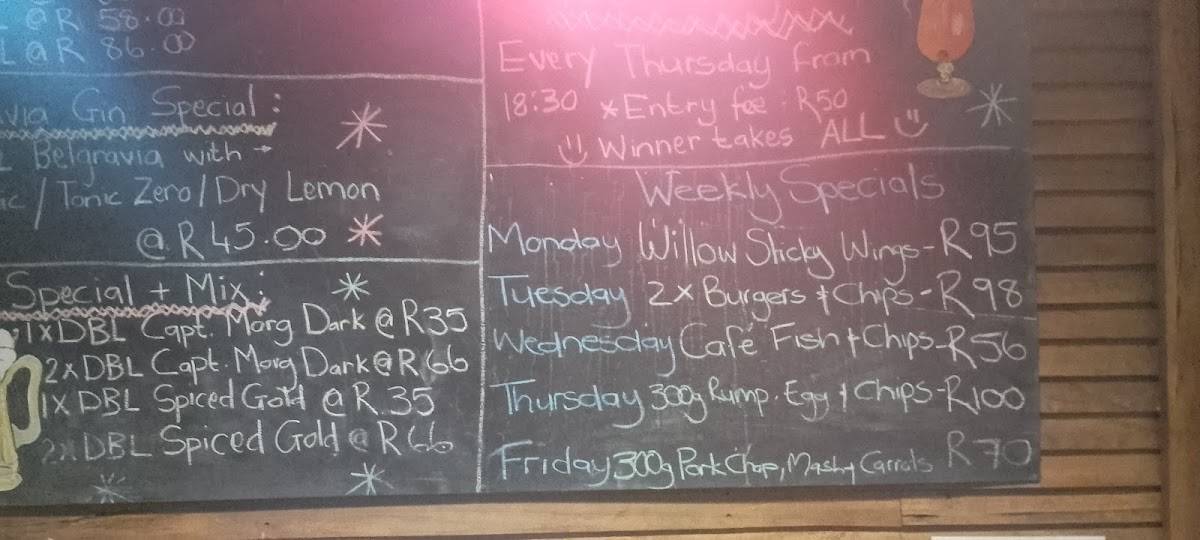 @ R 58.00
L @ R 86.00
Gin Special:
Belgravia with
/ Tonic Zero / Dry Lemon
@ R 45.00
Special + Mix:
1x DBL Capt. Morg Dark @ R35
2x DBL Capt. Morg Dark @ R66
1x DBL Spiced Gold @ R 35
2x DBL Spiced Gold @ R66
Every Thursday from
18:30 * Entry fee: R50
Winner takes ALL
Weekly Specials
Monday Willow Sticky Wings - R95
Tuesday 2x Burgers & Chips - R98
Wednesday Café Fish & Chips - R56
Thursday 300g Rump. Egg & Chips - R100
Friday 300g Pork Chop, Mash & Carrots R70